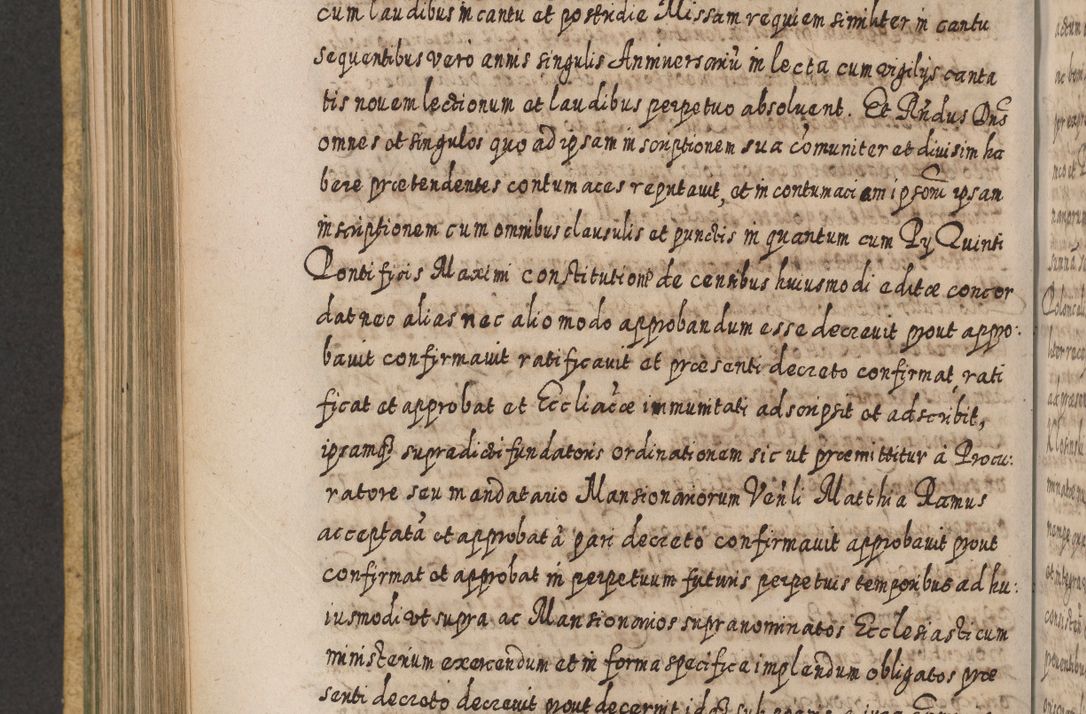 cum laudibus in cantu et postridie Missam requiem similiter in cantu
sequentibus vero annis singulis Anniversariũ in lecta cum vigilijs canta
tis novem lectionum et laudibus perpetuo absolvent. Et Rñdus Dns
omnes et singulos quo ad ipsam inscriptionem sua cõmuniter et divisim ha
bere prætendentes contumaces reputavit, et in contumaciam ipsorũ ipsam
inscriptionem cum omnibus clausulis et punctis in quantum cum Py Quinti
Pontificis Maximi constitutione de censibus huiusmodi editæ concor
dat nec alias nec alio modo approbandum esse decrevit prout appro:
bavit confirmavit ratificavit et præsenti decreto confirmat, rati
ficat et approbat et Eccliacæ immunitati adscripsit et adscribit,
ipsamq supradicti fundatoris ordinationem sic ut præmittitur à Procu:
ratore seu mandatario Mansionariorum Venli Matthia Ramus
acceptatã et approbatã pari decreto confirmavit approbavit prout
confirmat et approbat in perpetuum futuris perpetuis temporibus ad hu:
iusmodi ut supra ac Mansionarios supranominatos Ecclesiasticum
ministerium exercendum et in forma specifica implendum obligatos præ
senti decreto decrevit prout decernit idq sub